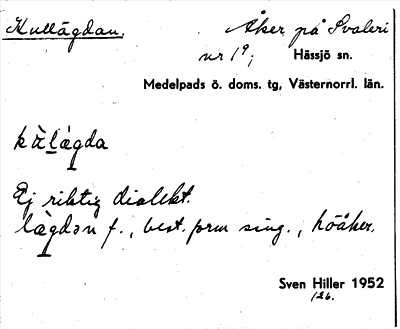 Kullägdan. Åker på Svaleri
nr 1⁹; Hässjö sn.
Medelpads ö. doms. tg, Västernorrl. län.
Ej riktig dialekt.
f., best. form sing., höåker.
Sven Hiller 1952
126.